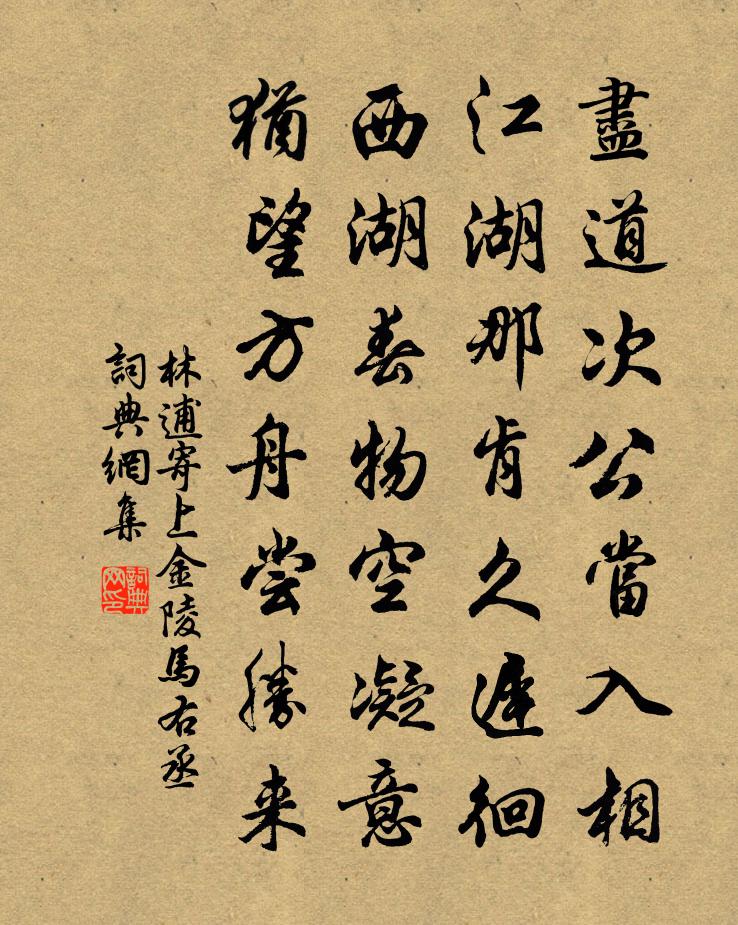 盡道次公當入相
江湖那肯久遲徊
西湖春物空凝意
猶望方舟尝勝来
林逋寄上金陵馬右丞
詞典網集
詞典
网印